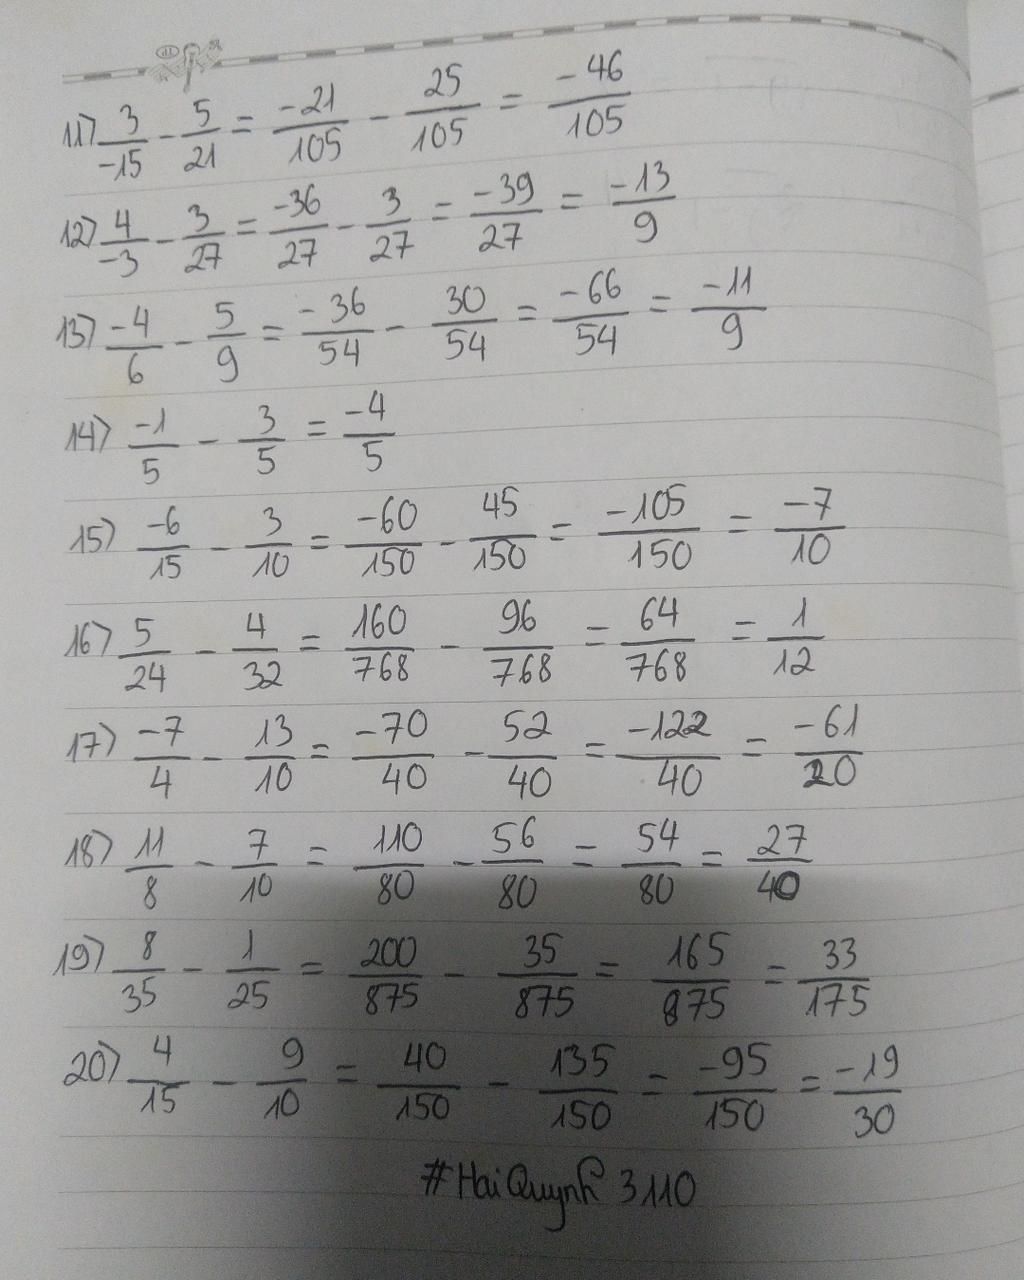 11) 3/-15 - 5/21 = -21/105 - 25/105 = -46/105
12) 4/-3 - 3/27 = -36/27 - 3/27 = -39/27 = -13/9
13) -4/6 - 5/9 = -36/54 - 30/54 = -66/54 = -11/9
14) -1/5 - 3/5 = -4/5
15) -6/15 - 3/10 = -60/150 - 45/150 = -105/150 = -7/10
16) 5/24 - 4/32 = 160/768 - 96/768 = 64/768 = 1/12
17) -7/4 - 13/10 = -70/40 - 52/40 = -122/40 = -61/20
18) 11/8 - 7/10 = 110/80 - 56/80 = 54/80 = 27/40
19) 8/35 - 1/25 = 200/875 - 35/875 = 165/875 = 33/175
20) 4/15 - 9/10 = 40/150 - 135/150 = -95/150 = -19/30
#HaiQuynh 3110